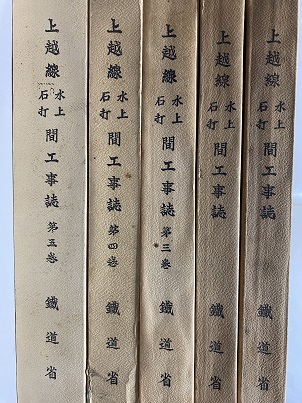 上越線 水上 石打 間工事誌 第五巻 鐵道省
上越線 水上 石打 間工事誌 第四巻 鐵道省
上越線 水上 石打 間工事誌 第三巻 鐵道省
上越線 水上 石打 間工事誌 鐵道省
上越線 水上 石打 間工事誌 鐵道省